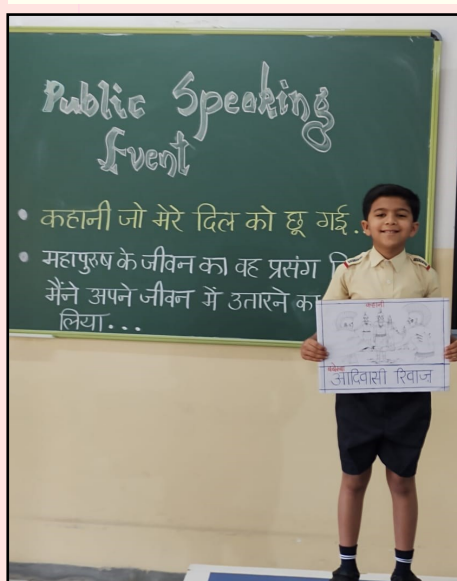 Public Speaking
Event
• कहानी जो मेरे दिल को छू गई.
• महापुरुष के जीवन का वह प्रसंग
मैंने अपने जीवन में उतारने का
लिया...
कहानी
आदिवासी रिवाज